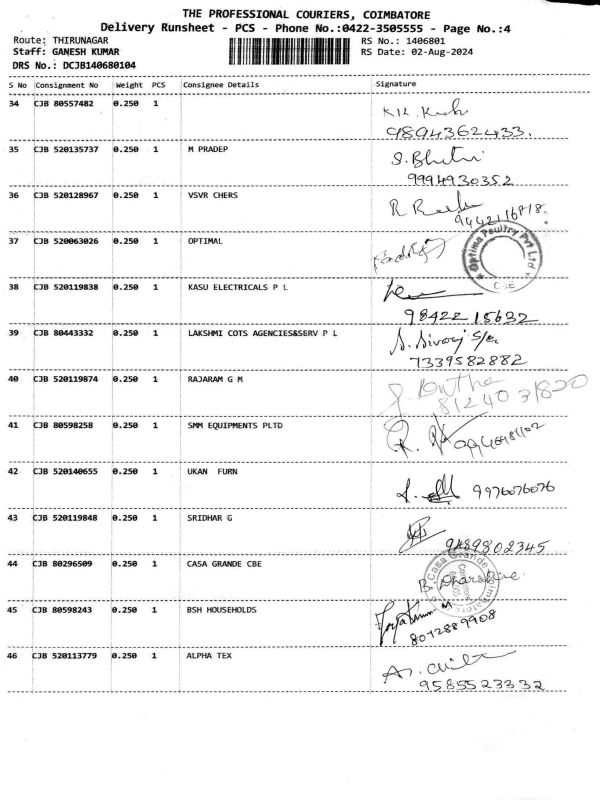 THE PROFESSIONAL COURIERS, COIMBATORE
Delivery Runsheet - PCS - Phone No.:0422-3505555 - Page No.:4
Route: THIRUNAGAR RS No.: 1406801
Staff: GANESH KUMAR RS Date: 02-Aug-2024
DRS No.: DCJB140680104
S No Consignment No Weight PCS Consignee Details Signature
34 CJB 80557482 0.250 1
9894362433.
35 CJB 520135737 0.250 1 M PRADEP
9994930352
36 CJB 520128967 0.250 1 VSVR CHERS
37 CJB 520063026 0.250 1 OPTIMAL
Optima Poultry Pvt Ltd
CBE
38 CJB 520119838 0.250 1 KASU ELECTRICALS P L
98422 15632
39 CJB 80443332 0.250 1 LAKSHMI COTS AGENCIES&SERV P L
7339582882
40 CJB 520119874 0.250 1 RAJARAM G M
8124031820
41 CJB 80598258 0.250 1 SMM EQUIPMENTS PLTD
42 CJB 520140655 0.250 1 UKAN FURN
9976076076
43 CJB 520119848 0.250 1 SRIDHAR G
9489802345
44 CJB 80296509 0.250 1 CASA GRANDE CBE
Casa Grande Coimbatore
45 CJB 80598243 0.250 1 BSH HOUSEHOLDS
8012889908
46 CJB 520113779 0.250 1 ALPHA TEX
9585523332